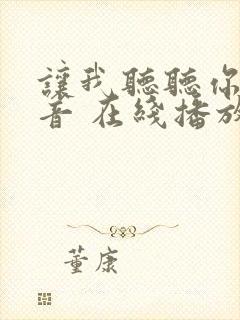 讓我聽聽你
音 在綫播放
董康